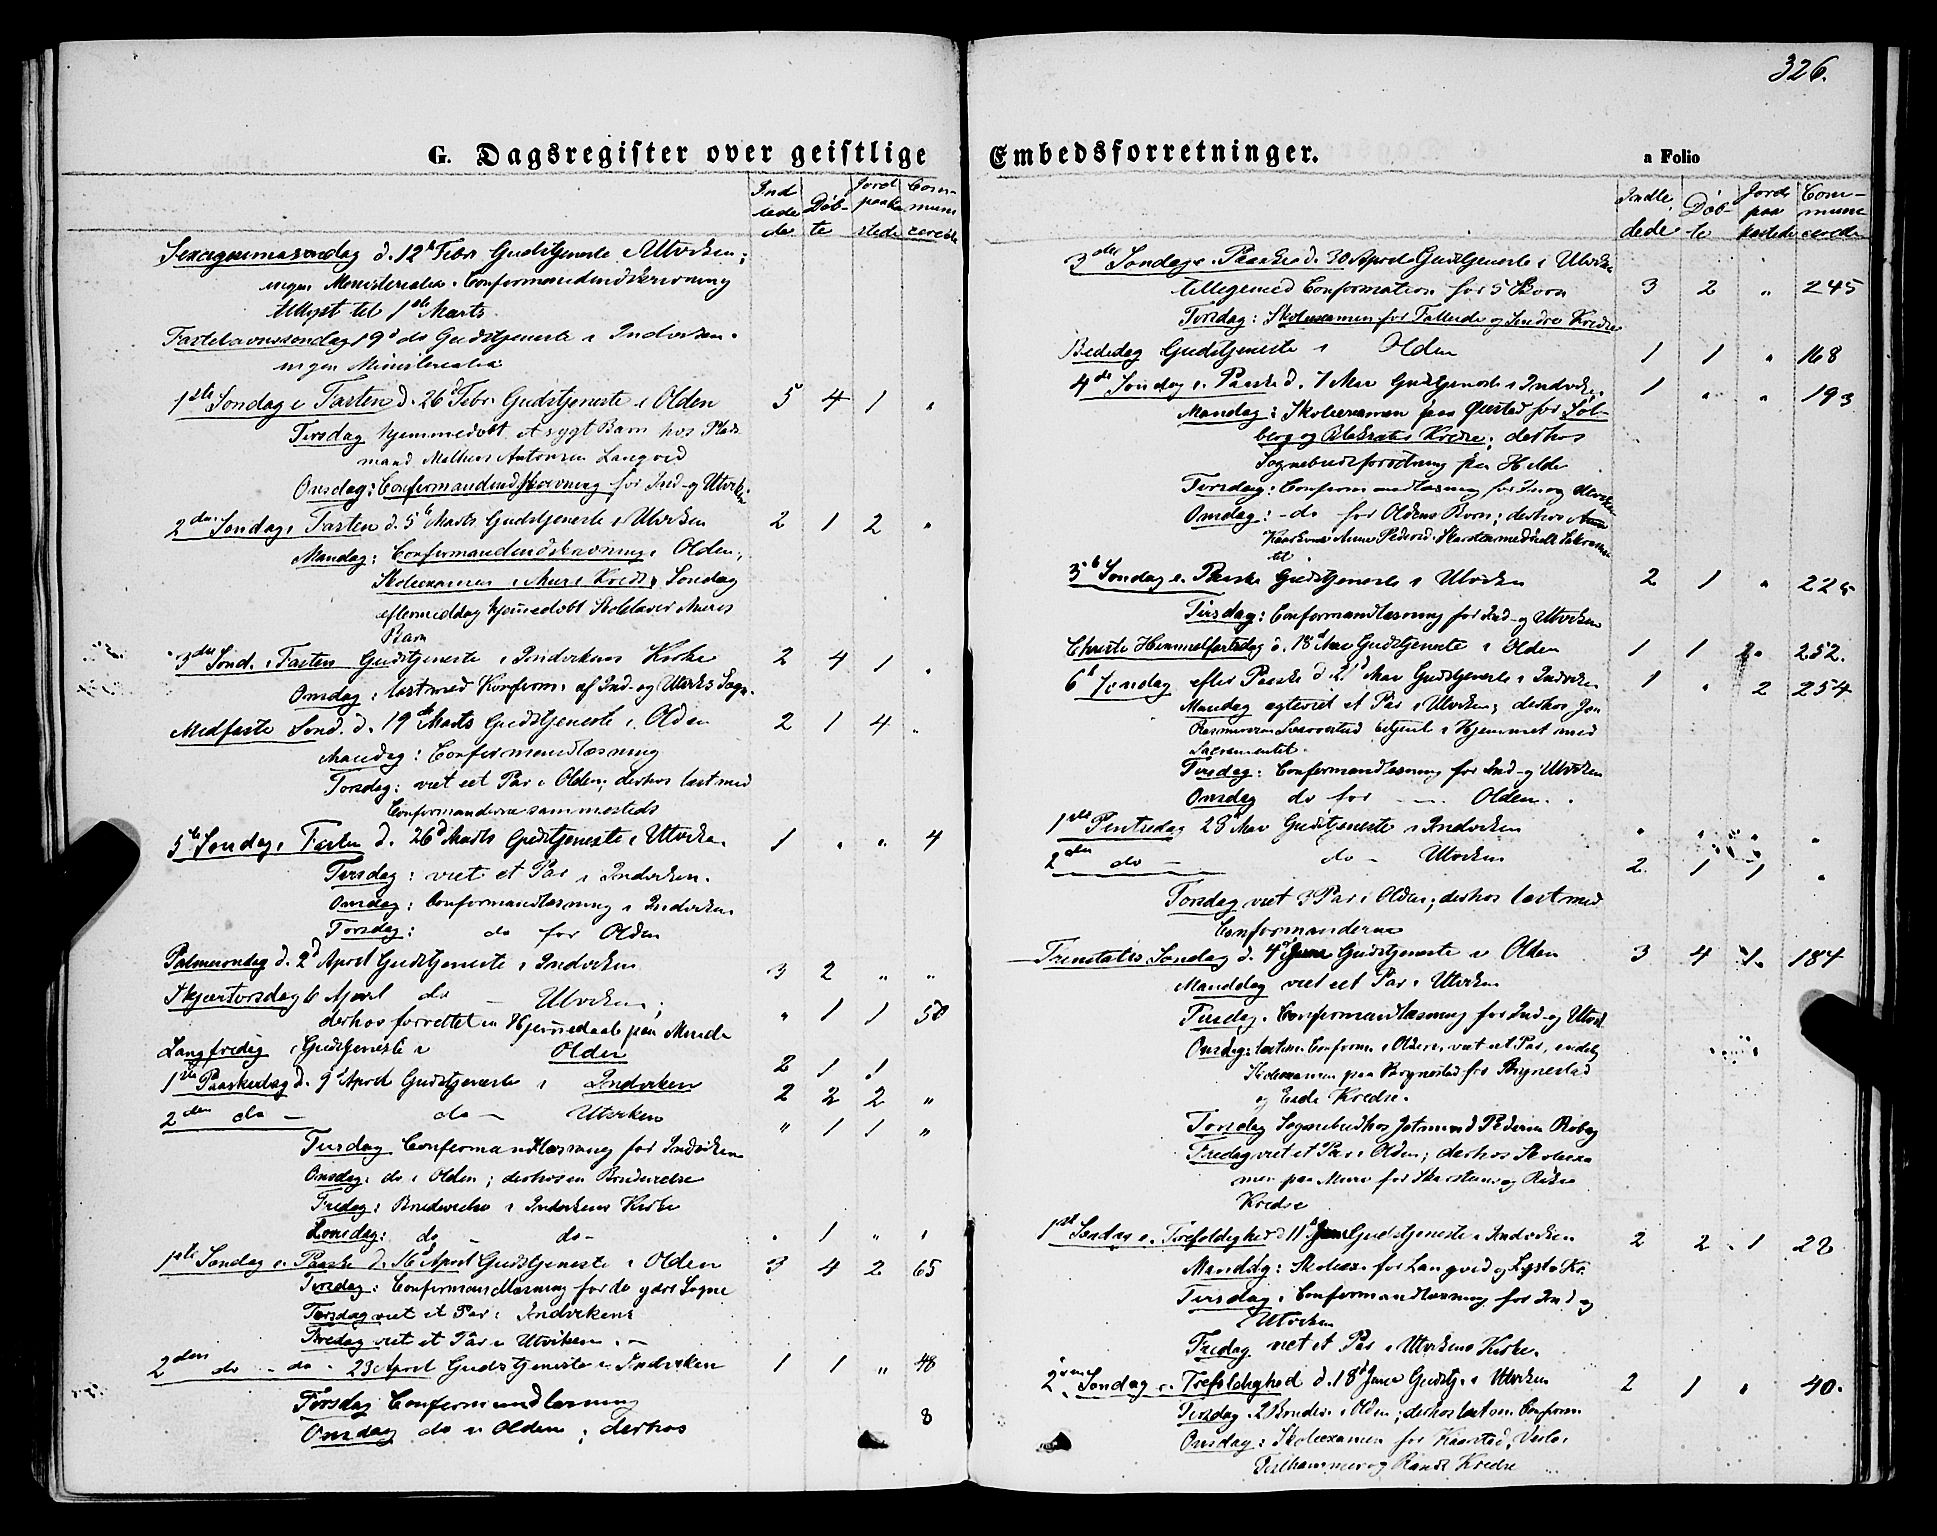 326.
G. Dagsregister over geistlige Embedsforretninger.
a Folio
Ind lede de | Døb- te | Jord paaka stede | Com- muni cerede
Sexagesimasøndag d. 12te Febr Gudstjeneste i Utviken;
ingen Ministerialia. Confirmandindskrivning
tillyst til 1ste Marts.
Fastelavnssøndag 19de do Gudstjeneste i Indviken.
ingen Ministerialia
1ste Søndag i Fasten d. 26d Febr. Gudstjeneste i Olden 5 4 1 "
Tirsdag hjemmedøbt et sygt Barn hos Plads
mand Mathias Antonsen Langvid
Onsdag: Confirmandindskrivning for Ind- og Utviken
2den Søndag i Fasten d. 5te Marts Gudstjeneste i Utviken 2 1 2 "
Mandag: Confirmandindskrivning i Olden,
Skoleexamen i Kreds. Søndag
eftermiddag hjemmedøbt Muris
Barn
3die Sønd. i Fasten Gudstjeneste i Indvikens Kirke 2 4 1 "
Onsdag: læst med Konfirm. af Ind- og Utviks Sogn.
Midfaste Sønd. d. 19de Marts Gudstjeneste i Olden 2 1 4 "
Mandag: Confirmandlæsning
Torsdag: viet eet Par i Olden; derhos læst med
Confirmanderne sammesteds
5te Søndag i Fasten d. 26d Marts Gudstjeneste i Utviken 1 " " 4
Tirsdag: viet et Par i Indviken.
Onsdag: Confirmandlæsning i Indviken
Torsdag: do for Olden
Palmesøndag d. 2d April Gudstjeneste i Indviken 3 2 " "
Skjærtorsdag 6 April do — Utviken; " 1 1 50
derhos forrettet en Hjemmedaab paa Muri
Langfredag Gudstjeneste i Olden 2 1 1
1ste Paaskedag d. 9d April Gudstjeneste i Indviken 2 2 2 "
2den do — do — Utviken " 1 1 "
Tirsdag Confirmandlæsning for Indviken
Onsdag: do i Olden; derhos en Brudevielse
Fredag: Brudevielse i Indvikens Kirke
Lørsdag: do — do — " 1 " "
1ste Søndag e. Paaske d. 16d April Gudstjeneste i Olden 3 4 2 65
Tirsdag: Confirmandlæsning for de ydre Sogne
Torsdag viet et Par i Indviken
Fredag viet et Par i Utviken. —
2den do — do — 23 April Gudstjeneste i Indviken 1 1 " 48
Tirsdag Confirmandlæsning
Onsdag do i Olden; derhos 8
Indle dede | Døb- te | Jord paa kastede | Com- muni cerede
3die Søndag e. Paaske d. 30 April Gudstjeneste i Utviken
tilligemed Confirmation for 5 Børn 3 2 " 245
Tirsdag: Skoleexamen for Tallede og Sindre Kredse
Bededag Gudstjeneste i Olden 1 1 " 168
4de Søndag e. Paaske d. 7 Mai Gudstjeneste i Indviken 1 " " 193
Mandag: Skoleexamen paa for Sol-
berg og Kredse; derhos
Sognebudsforretning paa Hilde
Tirsdag: Confirmandlæsning for Ind og Utviken
Onsdag: do for Oldens Børn; derhos
Anne Pedersd. Skarsten med Sakramen
tet
5te Søndag e. Paaske Gudstjeneste i Utviken 2 1 " 225
Tirsdag: Confirmandlæsning for Ind- og Utviken
Christi Himmelfartsdag d. 18d Mai Gudstjeneste i Olden 1 1 2 252.
6te Søndag efter Paaske d. 21d Mai Gudstjeneste i Indviken 1 " 2 254
Mandag egteviet et Par i Utviken; derhos Jon
Rasmussen betjent i Hjemmet med
Sacramentet.
Tirsdag: Confirmandlæsning for Ind- og Utviken
Onsdag do for — Olden.
1ste Pintsedag 28d Mai Gudstjeneste i Indviken " " " "
2den do — do — Utviken 2 1 1 "
Torsdag viet 3 Par i Olden; derhos læst med
Confirmanderne
Trinitatis Søndag d. 4d Juni Gudstjeneste i Olden 3 4 1 184
Manddag viet eet Par i Utviken
Tirsdag. Confirmandlæsning for Ind- og Utvik
Onsdag: læst m. Confirm. i Olden, viet et Par, endelig
Skoleexamen paa Brynestad for Brynestad
og Eide Kredse.
Torsdag Sognebud hos Pedersen
Fredag viet et Par i Olden; derhos Skoleexa
men paa Muri for Skarstens og
Kredse
1ste Søndag e. Trefoldighed d 11d Juni Gudstjeneste i Indviken 2 2 1 22
Mandag: Skoleex. for Langvid og Kr.
Tirsdag: Confirmandlæsning for Ind og
Utviken
Fredag viet et Par i Utvikens Kirke.
2den Søndag e. Trefoldighed d. 18d Juni Gudstj. i Utviken 2 1 " 40.
Tirsdag. 2 Brudev. i Olden; derhos læst m. Confirm
Onsdag: Skoleexamen for Kaarstad,
og Rands Kredse